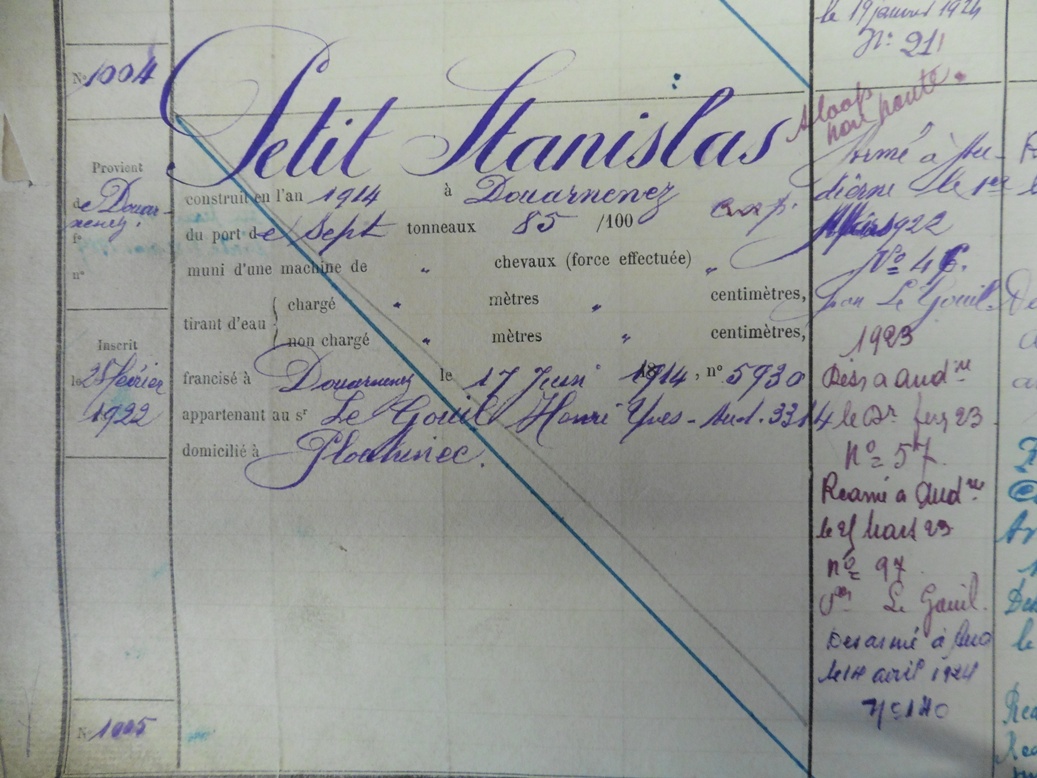 le 19 janvier 1924
N° 211
N° 1004
Petit Stanislas
Sloop
non ponté.
Provient
de Douar-
nenez.
fe
n°
construit en l'an 1914 à Douarnenez
du port de Sept tonneaux 85 /100
muni d'une machine de " chevaux (force effectuée) "
tirant d'eau
chargé " mètres " centimètres,
non chargé " mètres " centimètres,
Inscrit
le 25 février
1922
francisé à Douarnenez le 17 Juin 1914, n° 5930
appartenant au sr Le Gouil Henri Yves - Aud. 3314
domicilié à Plouhinec.
Armé à Au-
dierne le 1er
Mars 1922
N° 46.
Le Gouil
1923
Désar à Audne
le 23
N° 57.
Réarmé à Audne
le 21 Mars 23
n° 97
Le Gouil.
Désarmé à Aud
le 14 avril 1924
N° 140
N° 1005